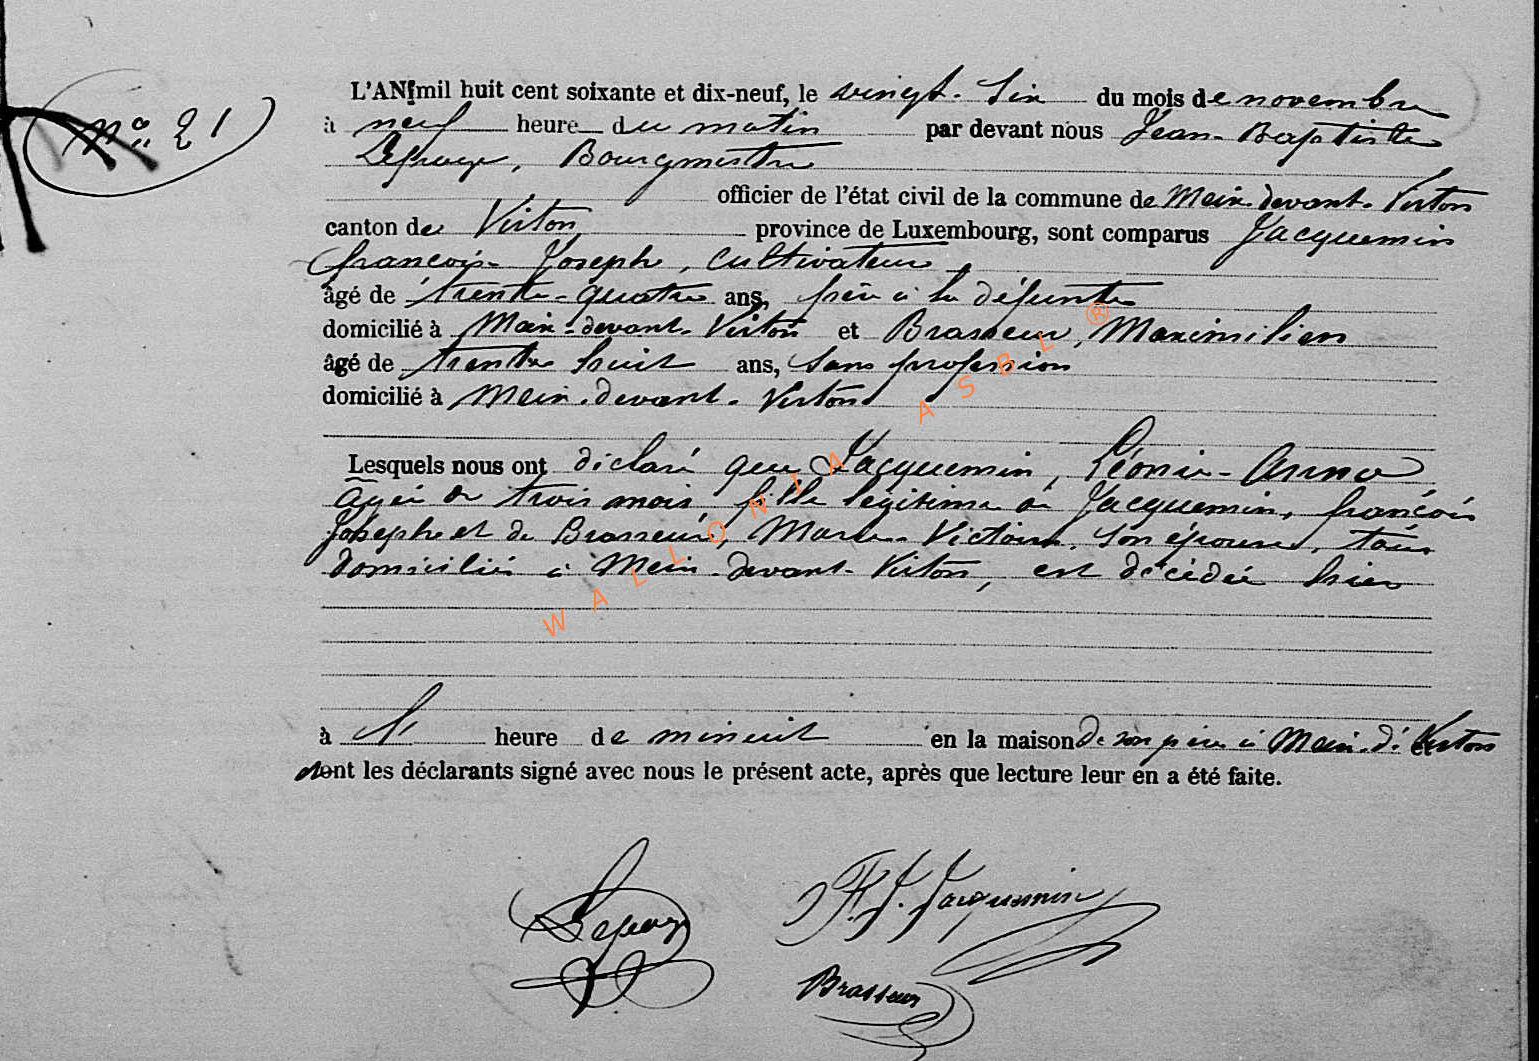 No. 21
L'AN mil huit cent soixante et dix-neuf, le vingt-six du mois de novembre
à neuf heure du matin par devant nous Jean-Baptiste
Bourgmestre
officier de l'état civil de la commune de Meix-devant-Virton
canton de Virton province de Luxembourg, sont comparus Jacquemin
françois-Joseph, cultivateur
âgé de trente-quatre ans, père à la défunte
domicilié à Meix-devant-Virton et Brasseur, Maximilien
âgé de trente huit ans, sans profession
domicilié à Meix-devant-Virton
Lesquels nous ont déclaré que Jacquemin, Léonie-Anna
agée de trois mois, fille légitime de Jacquemin, françois
Joseph et de Brasseur, Marie-Victoire, son épouse, tous
domiciliés à Meix-devant-Virton, est décédée hier
à l' heure de minuit en la maison de son père à Meix-dt Virton
et ont les déclarants signé avec nous le présent acte, après que lecture leur en a été faite.
F. J. Jacquemin
Brasseur
WALLONIA ASBL ®